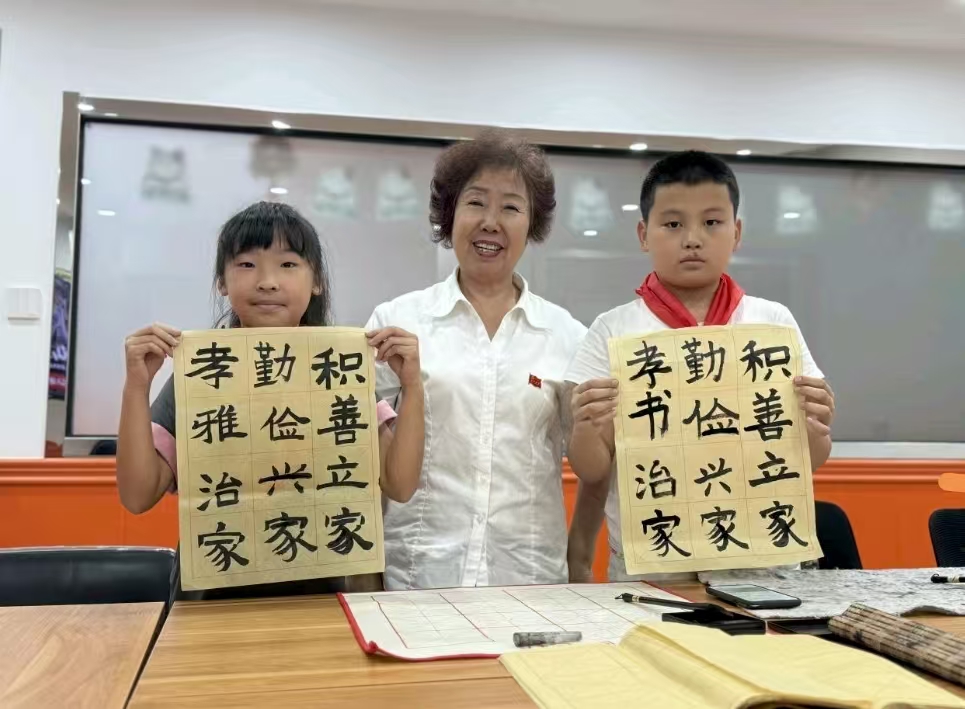 积善立家
勤俭兴家
孝雅治家
积善立家
勤俭兴家
孝书治家